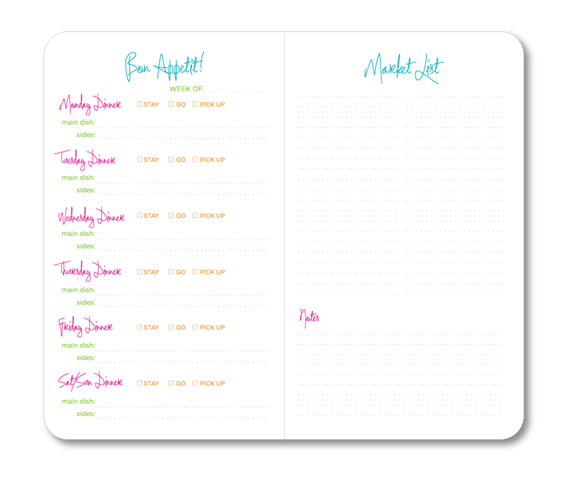 Bon Appetit!
WEEK OF:
Monday Dinner STAY GO PICK UP
main dish:
sides:
Tuesday Dinner STAY GO PICK UP
main dish:
sides:
Wednesday Dinner STAY GO PICK UP
main dish:
sides:
Thursday Dinner STAY GO PICK UP
main dish:
sides:
Friday Dinner STAY GO PICK UP
main dish:
sides:
Sat/Sun Dinner STAY GO PICK UP
main dish:
sides:
Market List
Notes